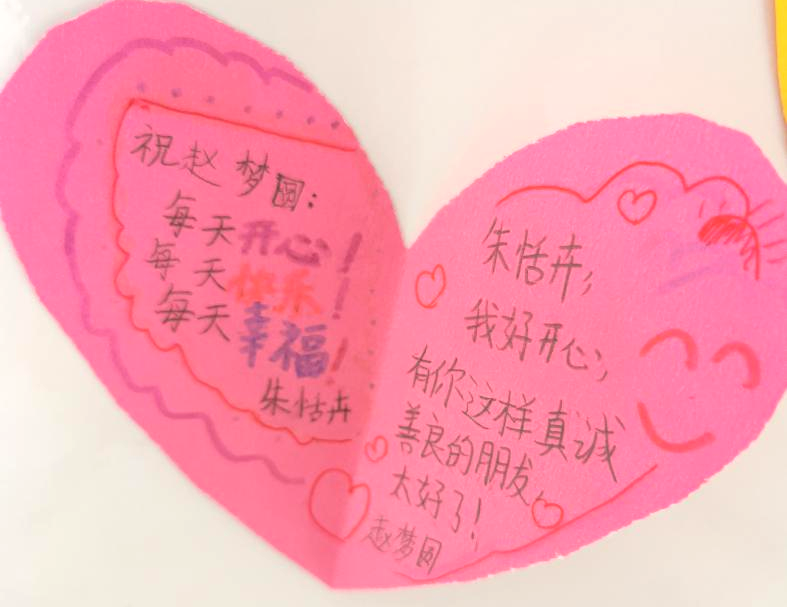 祝赵梦圆:
每天开心!
每天快乐!
每天幸福!
朱恬卉
朱恬卉,
我好开心,
有你这样真诚
善良的朋友,
太好了!
赵梦圆